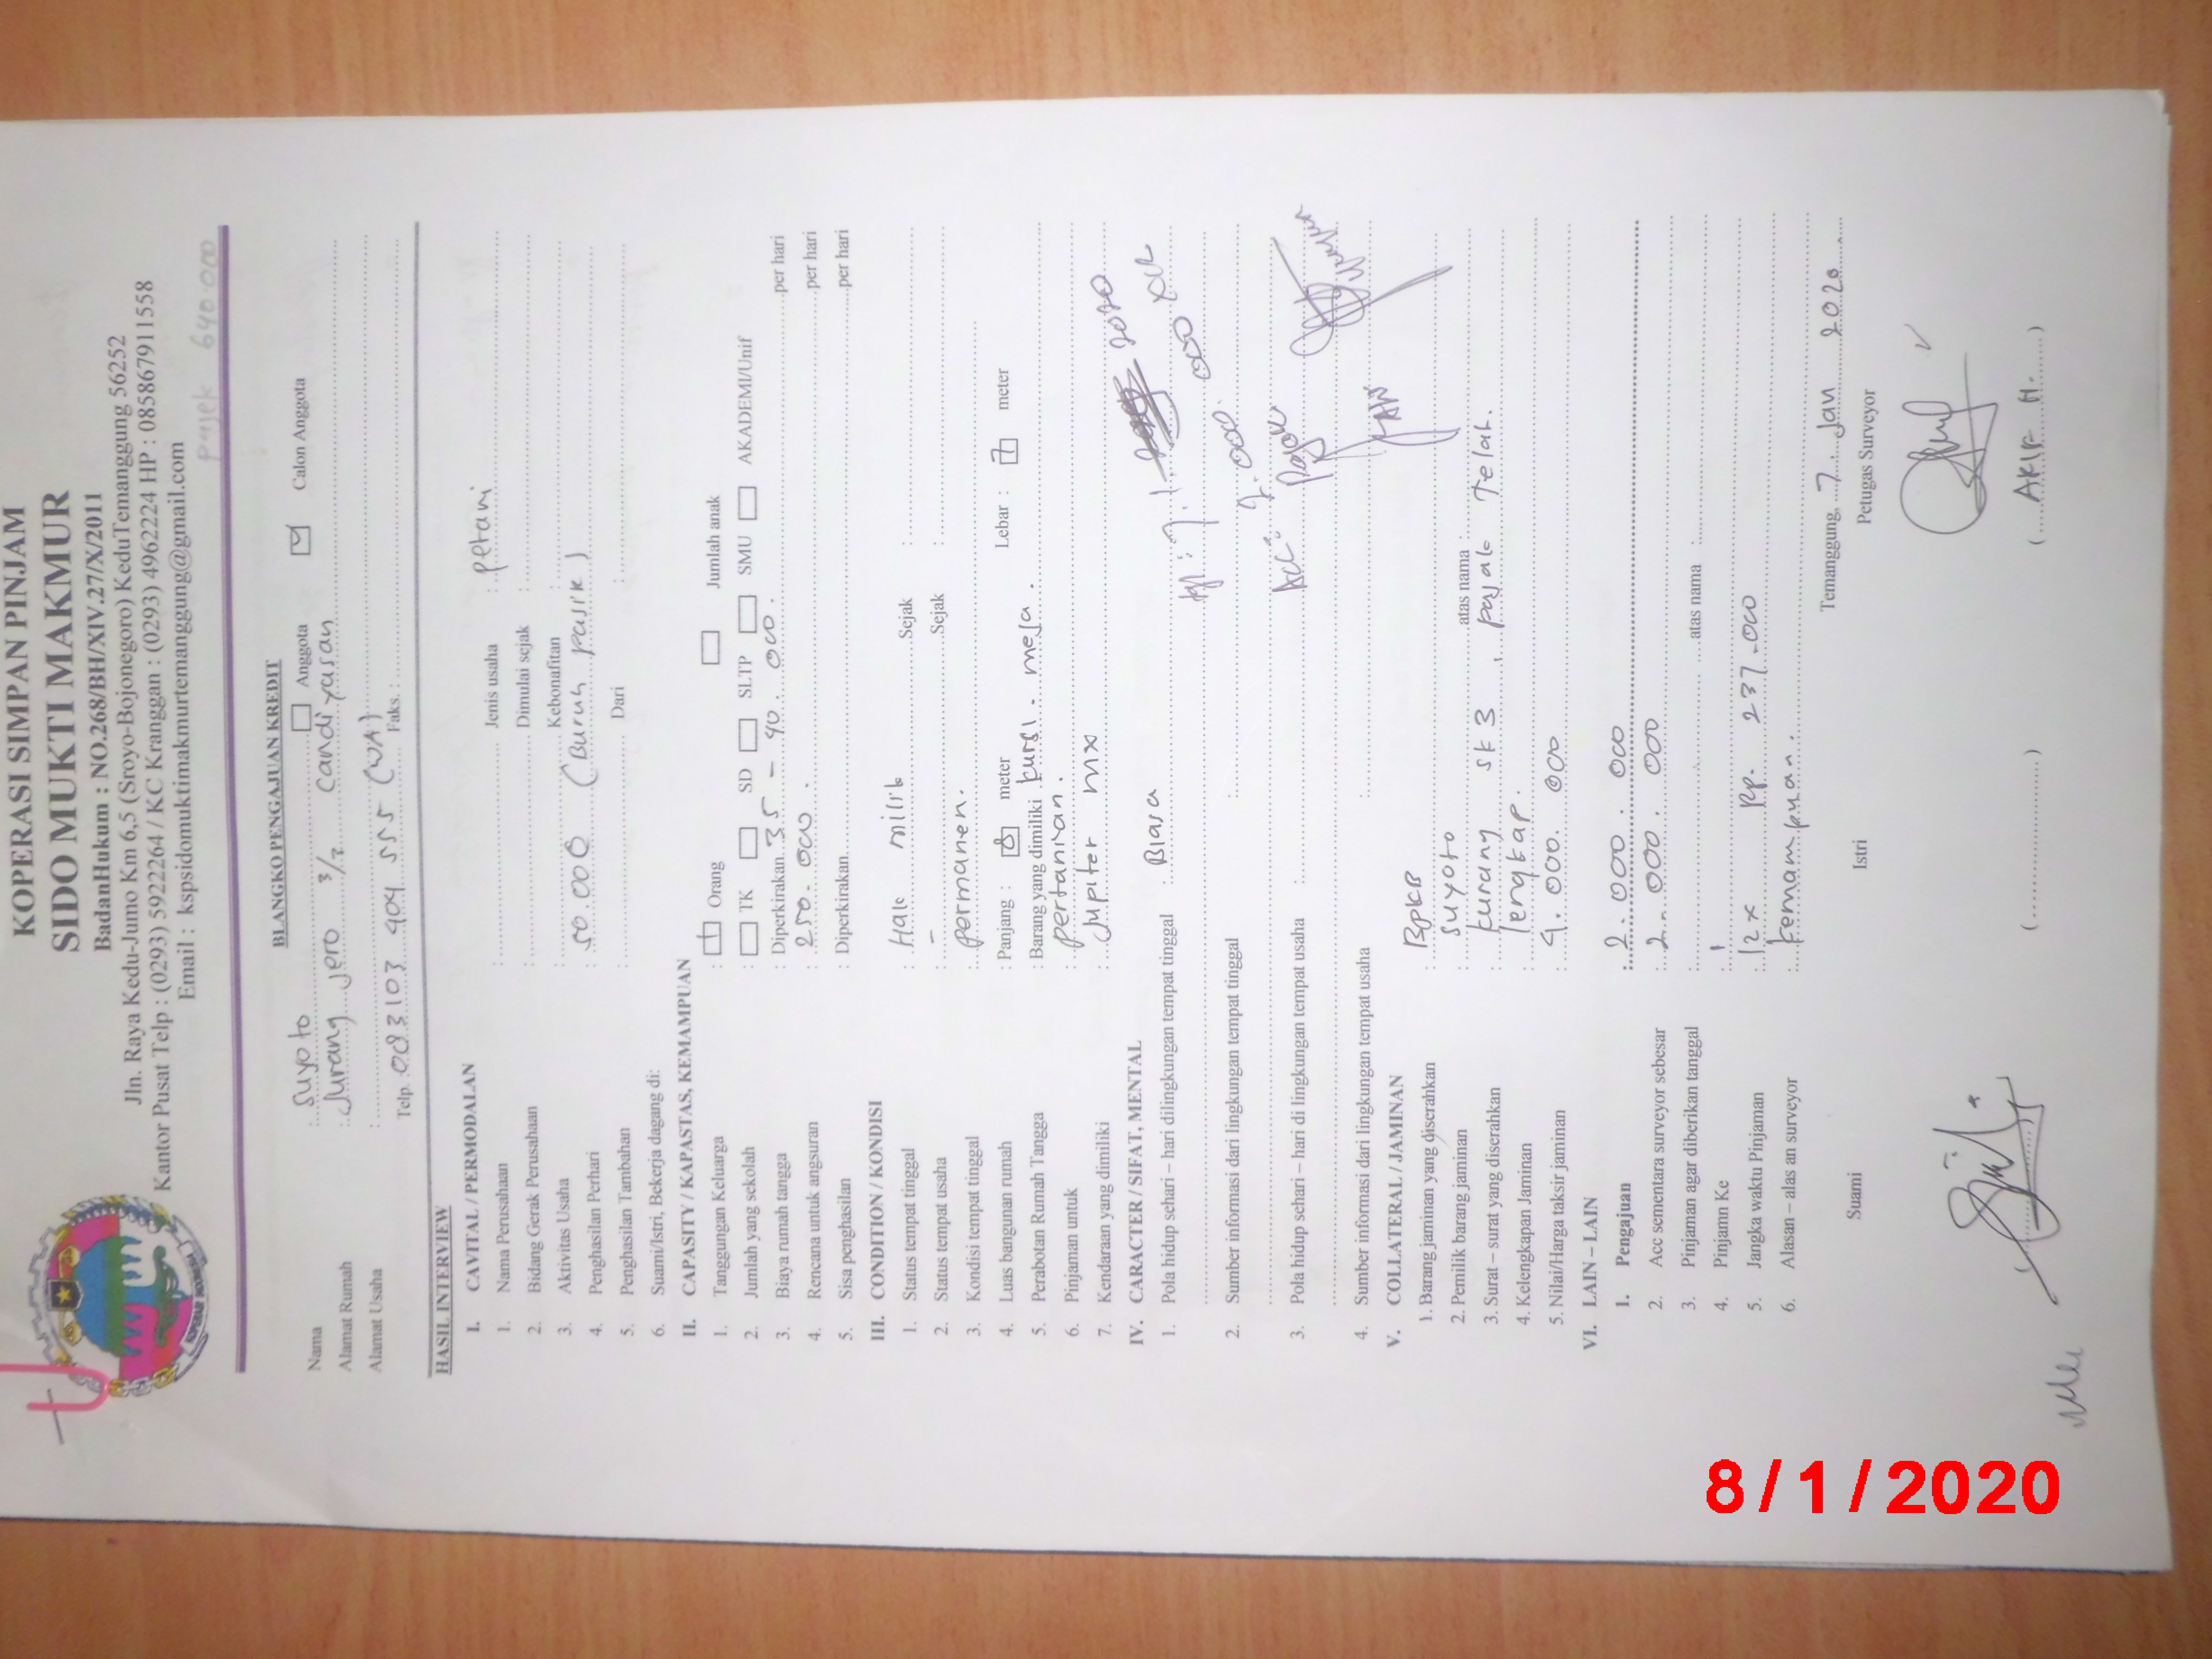 KOPERASI SIMPAN PINJAM
SIDO MUKTI MAKMUR
BadanHukum : NO.268/BH/XIV.27/X/2011
Jln. Raya Kedu-Jumo Km 6,5 (Sroyo-Bojonegoro) KeduTemanggung 56252
Kantor Pusat Telp : (0293) 5922264 / KC Kranggan : (0293) 4962224 HP : 085867911558
Email : kspsidomuktimakmurtemanggung@gmail.com
Pajek 640 000
BLANGKO PENGAJUAN KREDIT
Nama : Suyoto Anggota Calon Anggota
Alamat Rumah : Jurang Jero 3/2 Candiyasan
Alamat Usaha :
Telp. 083103 404 555 (WA) Faks. :
HASIL INTERVIEW
I. CAVITAL / PERMODALAN
1. Nama Perusahaan : Jenis usaha : petani
2. Bidang Gerak Perusahaan : Dimulai sejak :
3. Aktivitas Usaha : Kebonafitan :
4. Penghasilan Perhari : 50.000 (Buruh pasir)
5. Penghasilan Tambahan : Dari :
6. Suami/Istri, Bekerja dagang di:
II. CAPASITY / KAPASTAS, KEMAMPUAN
1. Tanggungan Keluarga : Orang Jumlah anak
2. Jumlah yang sekolah : TK SD SLTP SMU AKADEMI/Unif
3. Biaya rumah tangga : Diperkirakan 35 - 40.000. per hari
4. Rencana untuk angsuran : 250.000. per hari
5. Sisa penghasilan : Diperkirakan per hari
III. CONDITION / KONDISI
1. Status tempat tinggal : Hak milik Sejak :
2. Status tempat usaha : - Sejak :
3. Kondisi tempat tinggal : permanen.
4. Luas bangunan rumah : Panjang : meter Lebar : 7 meter
5. Perabotan Rumah Tangga : Barang yang dimiliki kursi - meja.
6. Pinjaman untuk : pertanian.
7. Kendaraan yang dimiliki : Jupiter MX
IV. CARACTER / SIFAT, MENTAL
1. Pola hidup sehari – hari dilingkungan tempat tinggal : Biasa
2. Sumber informasi dari lingkungan tempat tinggal :
Acc: 2.000.000
3. Pola hidup sehari – hari di lingkungan tempat usaha :
4. Sumber informasi dari lingkungan tempat usaha :
V. COLLATERAL / JAMINAN
1. Barang jaminan yang diserahkan : BPKB
2. Pemilik barang jaminan : Suyoto atas nama :
3. Surat – surat yang diserahkan : kurang sk 3, pajak Telah.
4. Kelengkapan Jaminan : lengkap.
5. Nilai/Harga taksir jaminan : 4.000.000
VI. LAIN – LAIN
1. Pengajuan : 2.000.000
2. Acc sementara surveyor sebesar : 2.000.000
3. Pinjaman agar diberikan tanggal : atas nama :
4. Pinjamn Ke : 1
5. Jangka waktu Pinjaman : 12 x Rp. 237.000
6. Alasan – alas an surveyor : kemampuan.
Temanggung, 7 Jan 2020
Suami Istri Petugas Surveyor
( ) (AKIF H.)
8/1/2020